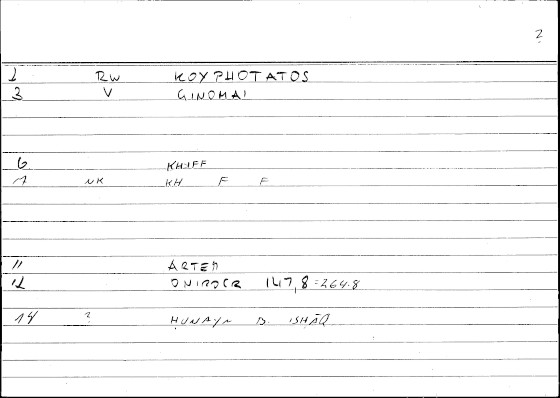 2
1 RW KOYPHOTATOS
3 V GINOMAI
6 KHIFF
7 NK KH F F
11 ARTEM
12 ONIROCR 147,8 = 264.8
14 ? ḤUNAYN B. ISḤĀQ